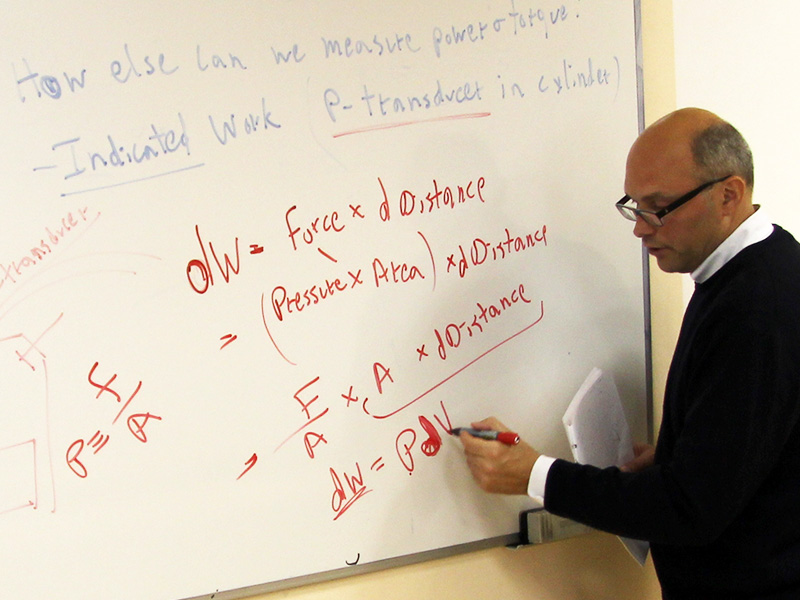 How else can we measure power & torque?
- Indicated Work (P-transducer in cylinder)
transducer
dW = Force × dDistance
= (Pressure × Area) × dDistance
= F/A × A × dDistance
P ≡ F/A
dW = PdV